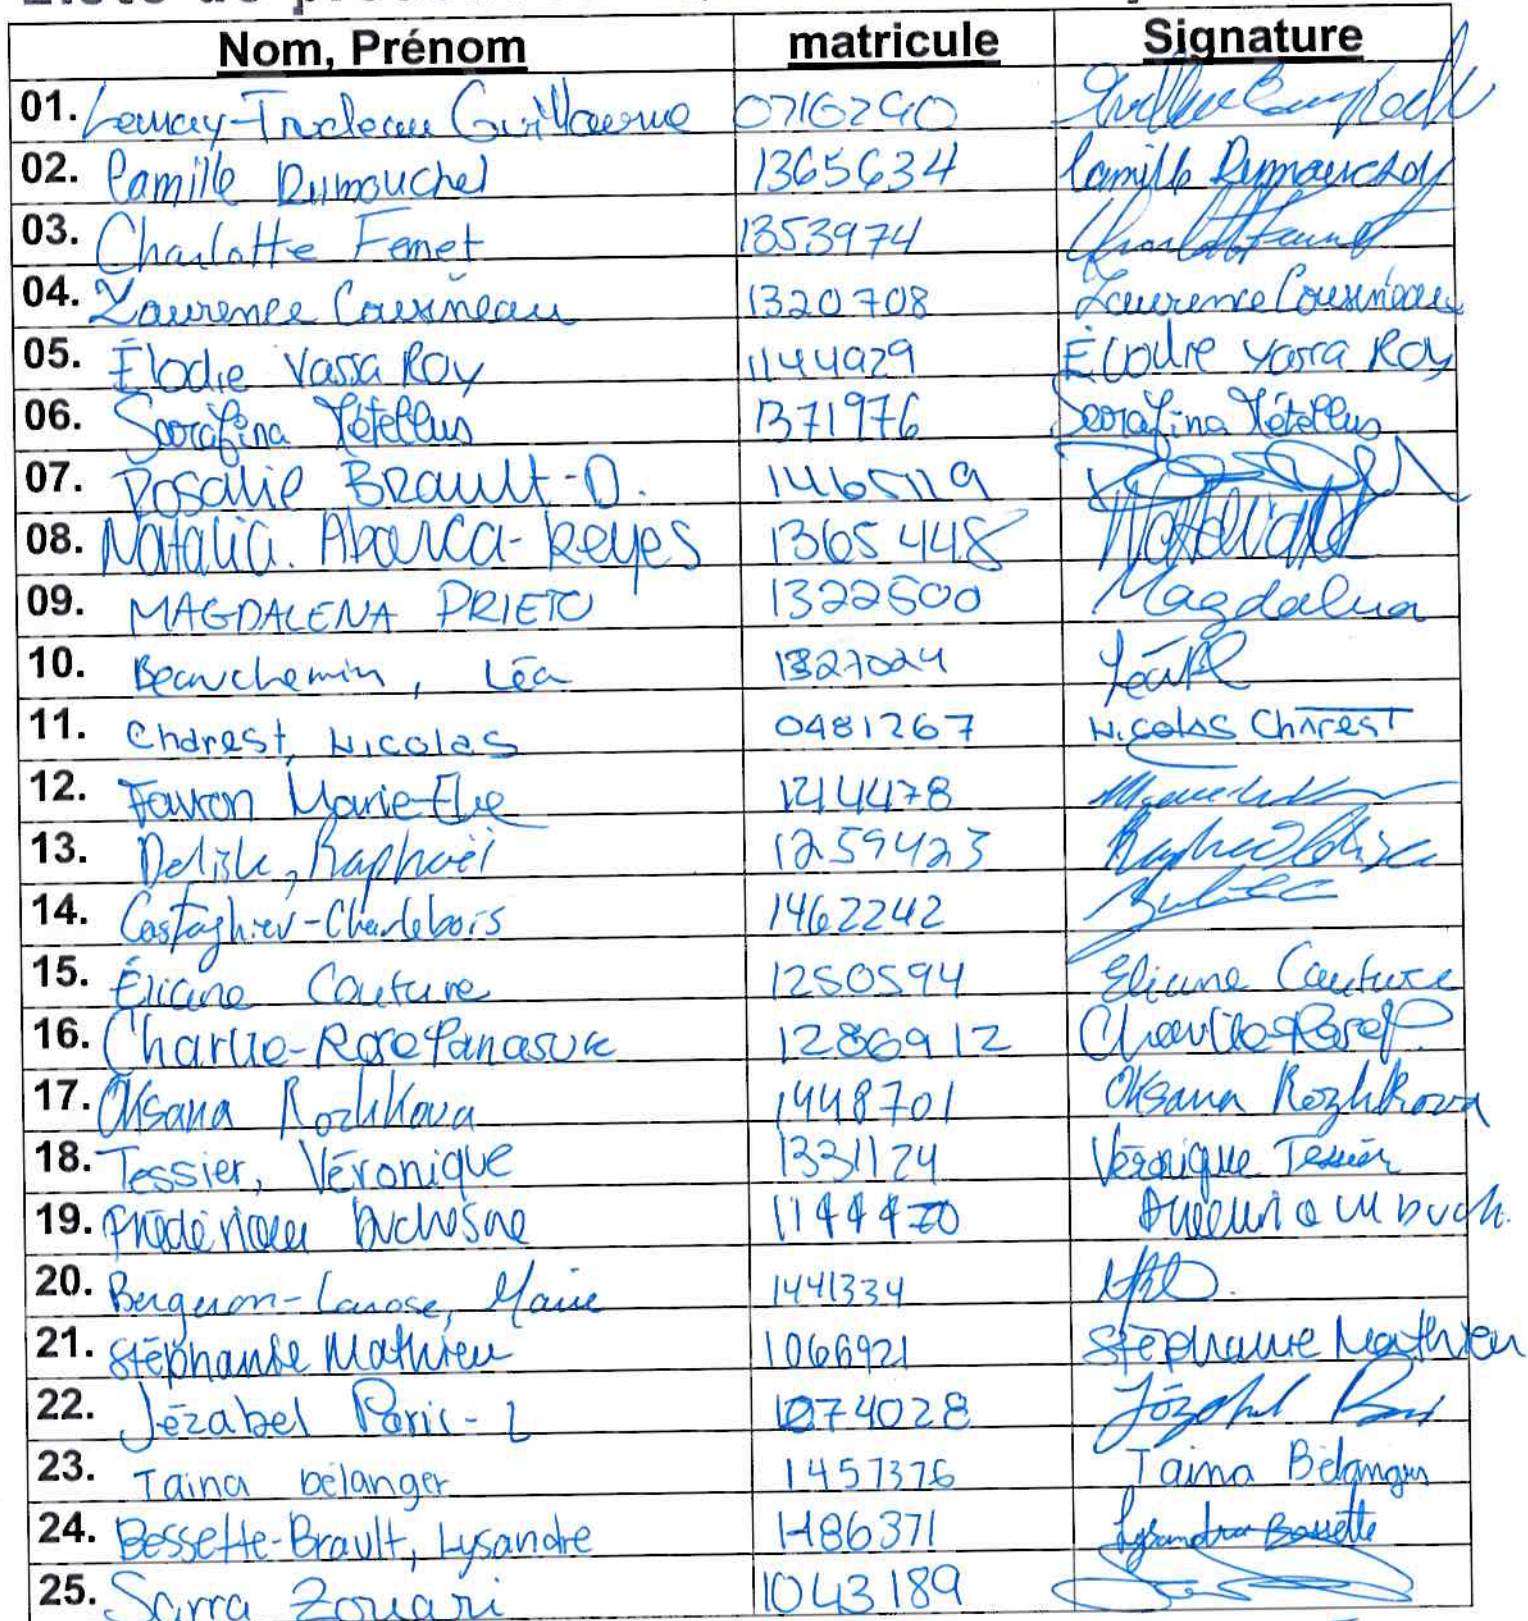 Nom, Prénom matricule Signature
01. Lemay-Trudeau Guillaume 0716290
02. Camille Dumouchel 1365634 Camille Dumouchel
03. Charlotte Femet 1353974
04. Laurence Cousineau 1320708 Laurence Cousineau
05. Élodie Vassa Roy 1144929 Élodie Vassa Roy
06. Serafina Métellus 1371976 Serafina Métellus
07. Rosalie Brault-D. 1465119
08. Natalia. Abarca-Reyes 1365448
09. MAGDALENA PRIETO 1322500 Magdalena
10. Beauchemin, Léa 1327024
11. Charest, Nicolas 0481267 Nicolas Charest
12. Favron Marie-Ève 1214478
13. Delisle, Raphaël 1259423
14. Castaghier-Charlebois 1462242
15. Éliane Couture 1250594 Eliane Couture
16. Charlie-Rose Panasuk 1286912 Charlie-Rose P.
17. Oksana Rozhkova 1448701 Oksana Rozhkova
18. Tessier, Véronique 1331124 Véronique Tessier
19. Frédérique Duchesne 1144470
20. Bergeron-Larose, Marie 1441334
21. Stéphanie Mathieu 1066921 Stéphanie Mathieu
22. Jézabel Paris-L 1074028
23. Taina bélanger 1457376 Taina Bélanger
24. Bessette-Brault, Lysandre 1486371 Lysandre Bessette
25. Sarra Zouari 1043189